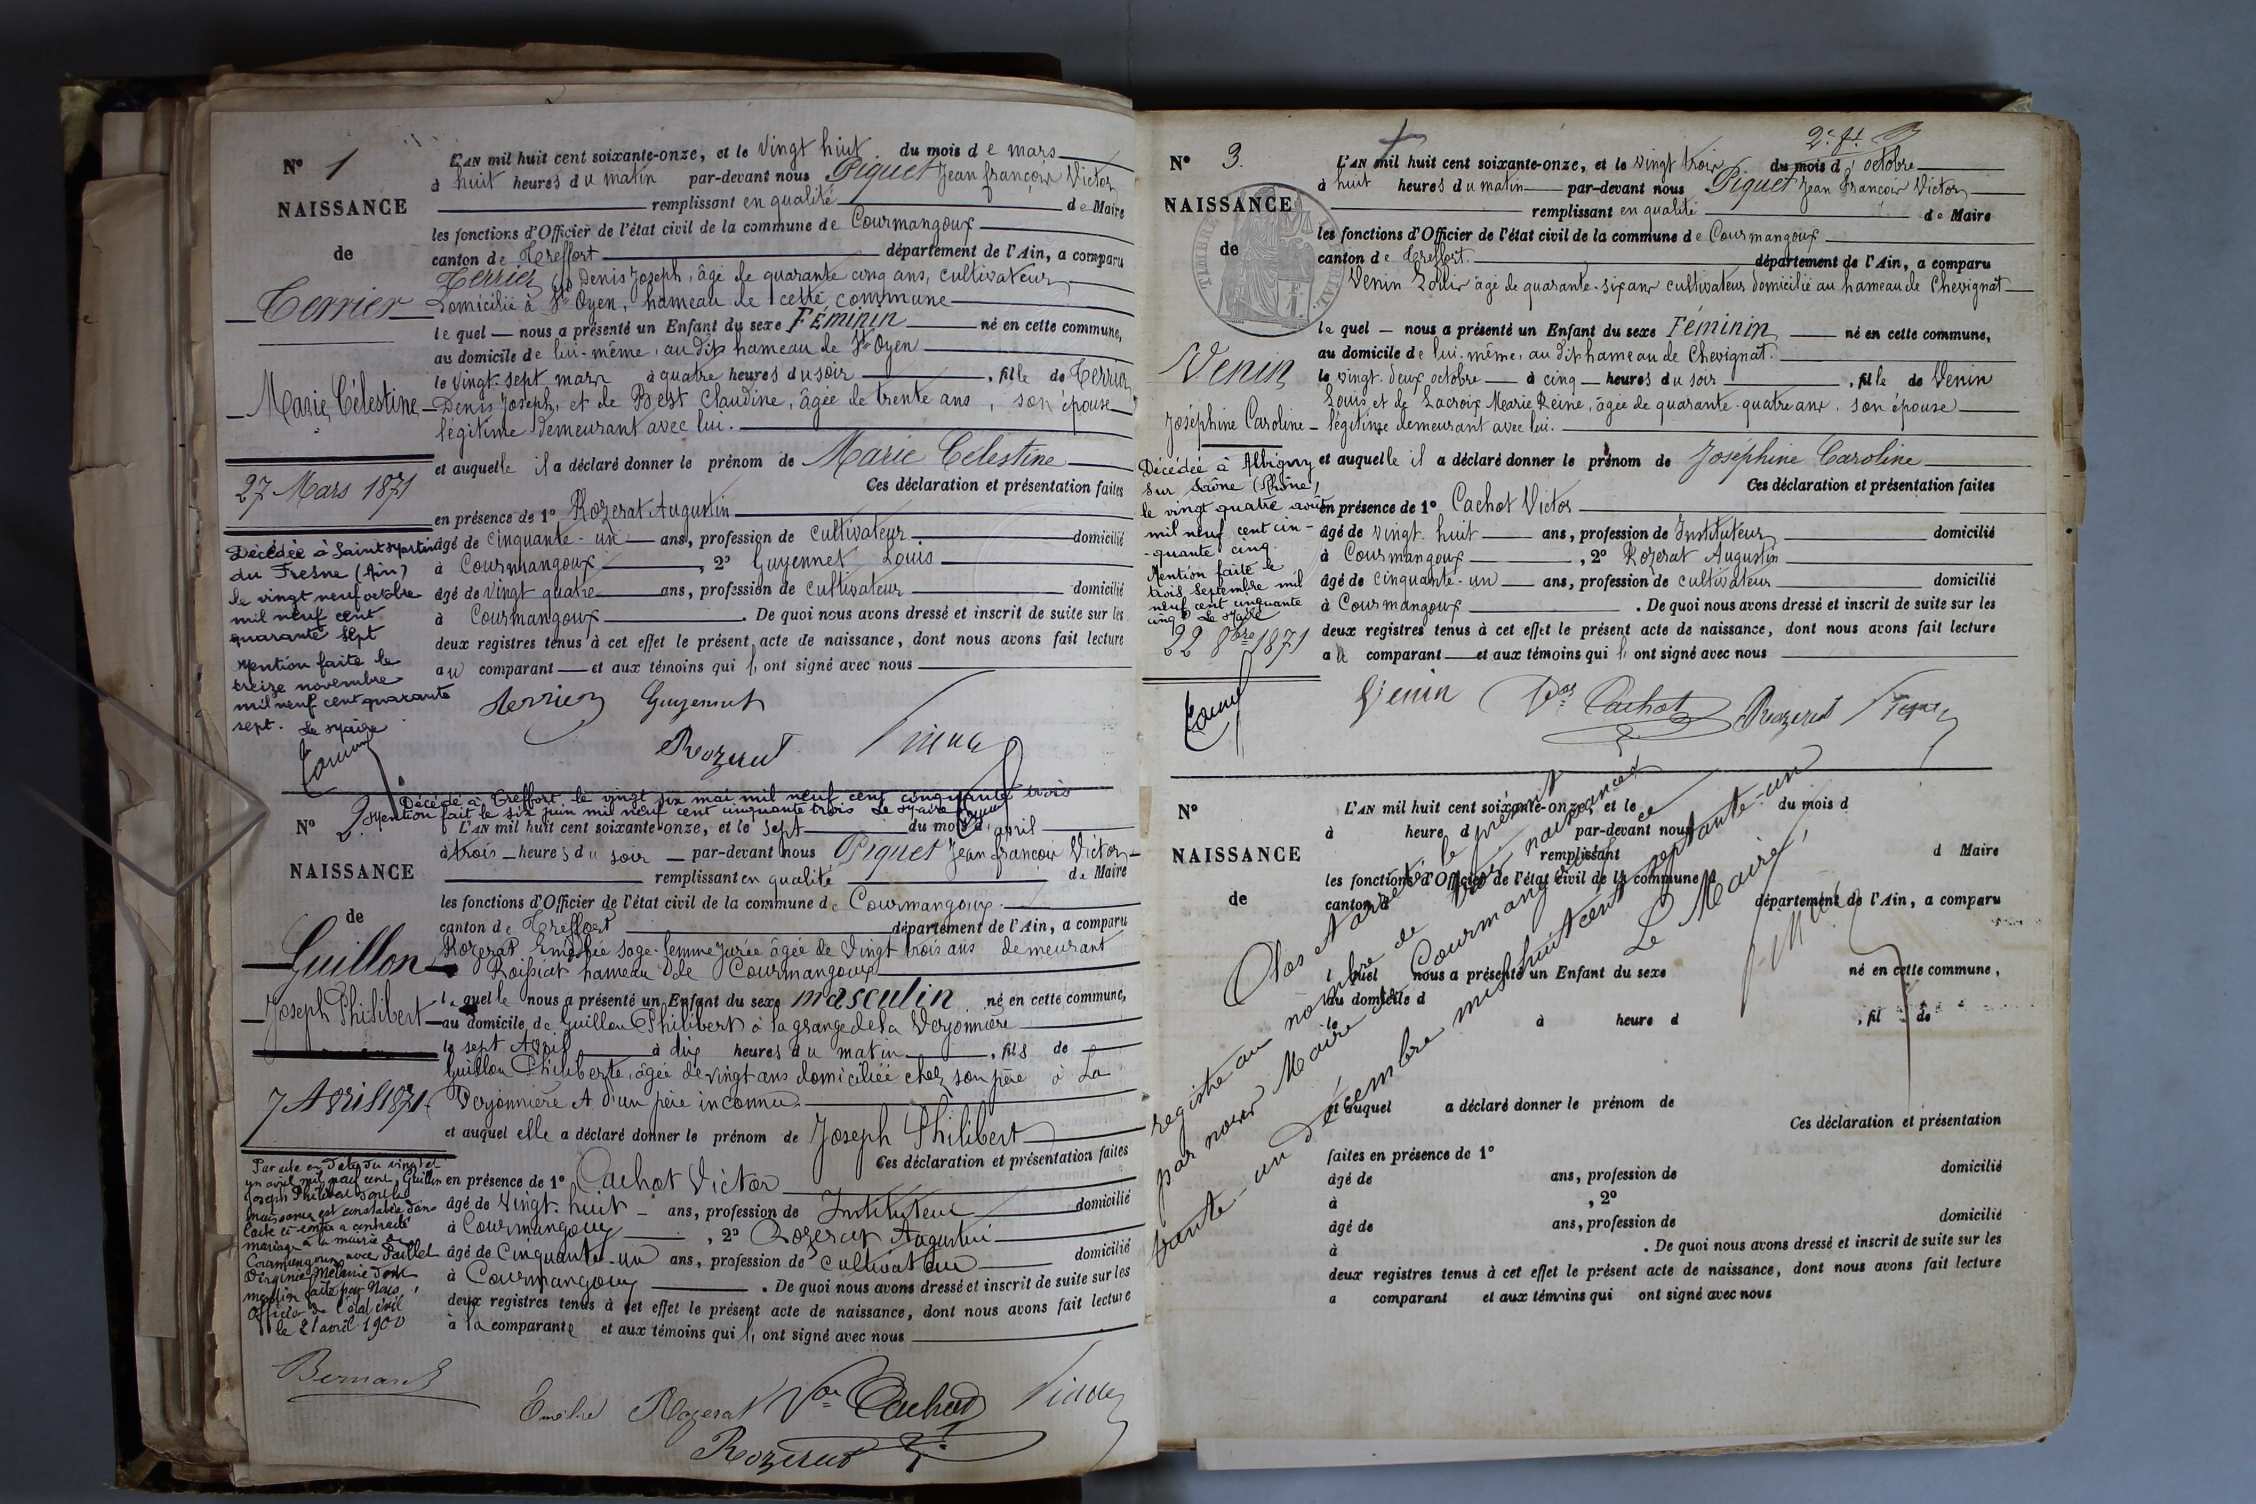 N° 1
NAISSANCE
de
Terrier
Marie Célestine
27 Mars 1871
Décédée à Saint Martin
du Fresne (Ain)
le vingt neuf octobre
mil neuf cent
quarante sept
Mention faite le
treize novembre
mil neuf cent quarante
sept. Le Maire
L'AN mil huit cent soixante-onze, et le vingt huit du mois de mars
à huit heures du matin par-devant nous Piquet Jean françois Victor
remplissant en qualité de Maire
les fonctions d'Officier de l'état civil de la commune de Courmangoux
canton de Treffort département de l'Ain, a comparu
Terrier Denis Joseph, âgé de quarante cinq ans, cultivateur
Domicilié à St Oyen, hameau de cette commune
lequel nous a présenté un Enfant du sexe Féminin né en cette commune,
au domicile de lui-même, au dit hameau de St Oyen
le vingt-sept mars à quatre heures du soir, fille de Terrier
Denis Joseph, et de Best Claudine, âgée de trente ans, son épouse
légitime demeurant avec lui.
et auquelle il a déclaré donner le prénom de Marie Célestine
Ces déclaration et présentation faites
en présence de 1° Rozerat Augustin
âgé de cinquante-un ans, profession de cultivateur domicilié
à Courmangoux, 2° Guyennet Louis
âgé de vingt quatre ans, profession de cultivateur domicilié
à Courmangoux. De quoi nous avons dressé et inscrit de suite sur les
deux registres tenus à cet effet le présent acte de naissance, dont nous avons fait lecture
au comparant et aux témoins qui l'ont signé avec nous
Terrier Guyennet
Rozerat
Décédé à Treffort le vingt six mai mil neuf cent cinquante trois
Mention fait le six juin mil neuf cent cinquante trois Le Maire
N° 2
NAISSANCE
de
Guillon
Joseph Philibert
7 Avril 1871
Par acte en date du vingt et
un avril mil neuf cent, Guillon
Joseph Philibert dont la
naissance est constatée dans
l'acte ci-contre a contracté
mariage à la mairie de
Courmangoux avec Paillet
Virginie Mélanie dont
mention faite par Nous,
officier de l'état civil
le 21 avril 1900
L'AN mil huit cent soixante-onze, et le sept du mois d'avril
à trois heures du soir par-devant nous Piquet Jean françois Victor
remplissant en qualité de Maire
les fonctions d'Officier de l'état civil de la commune de Courmangoux
canton de Treffort département de l'Ain, a comparu
Rozerat Emélie sage-femme jurée âgée de vingt trois ans demeurant
Roissiat hameau de Courmangoux
laquelle nous a présenté un Enfant du sexe masculin né en cette commune,
au domicile de Guillon Philibert à la grange de la Verjonnière
le sept Avril à dix heures du matin, fils de
Guillon Philiberte, âgée de vingt ans domiciliée chez son père à La
Verjonnière et d'un père inconnu.
et auquel elle a déclaré donner le prénom de Joseph Philibert
Ces déclaration et présentation faites
en présence de 1° Cachot Victor
âgé de vingt-huit ans, profession de Instituteur domicilié
à Courmangoux, 2° Rozerat Augustin
âgé de Cinquante-un ans, profession de cultivateur domicilié
à Courmangoux. De quoi nous avons dressé et inscrit de suite sur les
deux registres tenus à cet effet le présent acte de naissance, dont nous avons fait lecture
à la comparante et aux témoins qui l'ont signé avec nous
Bernard
Emélie Rozerat Vor Cachot
Rozerat
N° 3
NAISSANCE
de
Venin
Joséphine Caroline
Décédée à Albigny
sur Saône (Rhône)
le vingt quatre août
mil neuf cent cin-
quante cinq.
Mention faite le
trois septembre mil
neuf cent cinquante
cinq Le Maire
22 8bre 1871
L'AN mil huit cent soixante-onze, et le vingt trois du mois d'octobre
à huit heures du matin par-devant nous Piquet Jean François Victor
remplissant en qualité de Maire
les fonctions d'Officier de l'état civil de la commune de Courmangoux
canton de Treffort. département de l'Ain, a comparu
Venin Louis âgé de quarante-six ans cultivateur domicilié au hameau de Chevignat
lequel nous a présenté un Enfant du sexe Féminin né en cette commune,
au domicile de lui-même, au dit hameau de Chevignat.
le vingt-deux octobre à cinq heures du soir, fille de Venin
Louis et de Lacroix Marie Reine, âgée de quarante-quatre ans, son épouse
légitime demeurant avec lui.
et auquelle il a déclaré donner le prénom de Joséphine Caroline
Ces déclaration et présentation faites
en présence de 1° Cachot Victor
âgé de vingt-huit ans, profession de Instituteur domicilié
à Courmangoux, 2° Rozerat Augustin
âgé de cinquante-un ans, profession de cultivateur domicilié
à Courmangoux. De quoi nous avons dressé et inscrit de suite sur les
deux registres tenus à cet effet le présent acte de naissance, dont nous avons fait lecture
au comparant et aux témoins qui l'ont signé avec nous
Venin Vor Cachot Rozerat
N°
NAISSANCE
de
L'AN mil huit cent soixante-onze, et le du mois d
à heure d par-devant nous
remplissant d Maire
les fonctions d'Officier de l'état civil de la commune d
canton d département de l'Ain, a comparu
l quel nous a présenté un Enfant du sexe né en cette commune,
au domicile d
le à heure d , fil de
et auquel a déclaré donner le prénom de
Ces déclaration et présentation
faites en présence de 1°
âgé de ans, profession de domicilié
à , 2°
âgé de ans, profession de domicilié
à . De quoi nous avons dressé et inscrit de suite sur les
deux registres tenus à cet effet le présent acte de naissance, dont nous avons fait lecture
a comparant et aux témoins qui ont signé avec nous
Clos et arrêté le présent
registre au nombre de trois naissances
par nous Maire de Courmangoux ce
trente-un décembre mil huit cent septante-un
Le Maire,